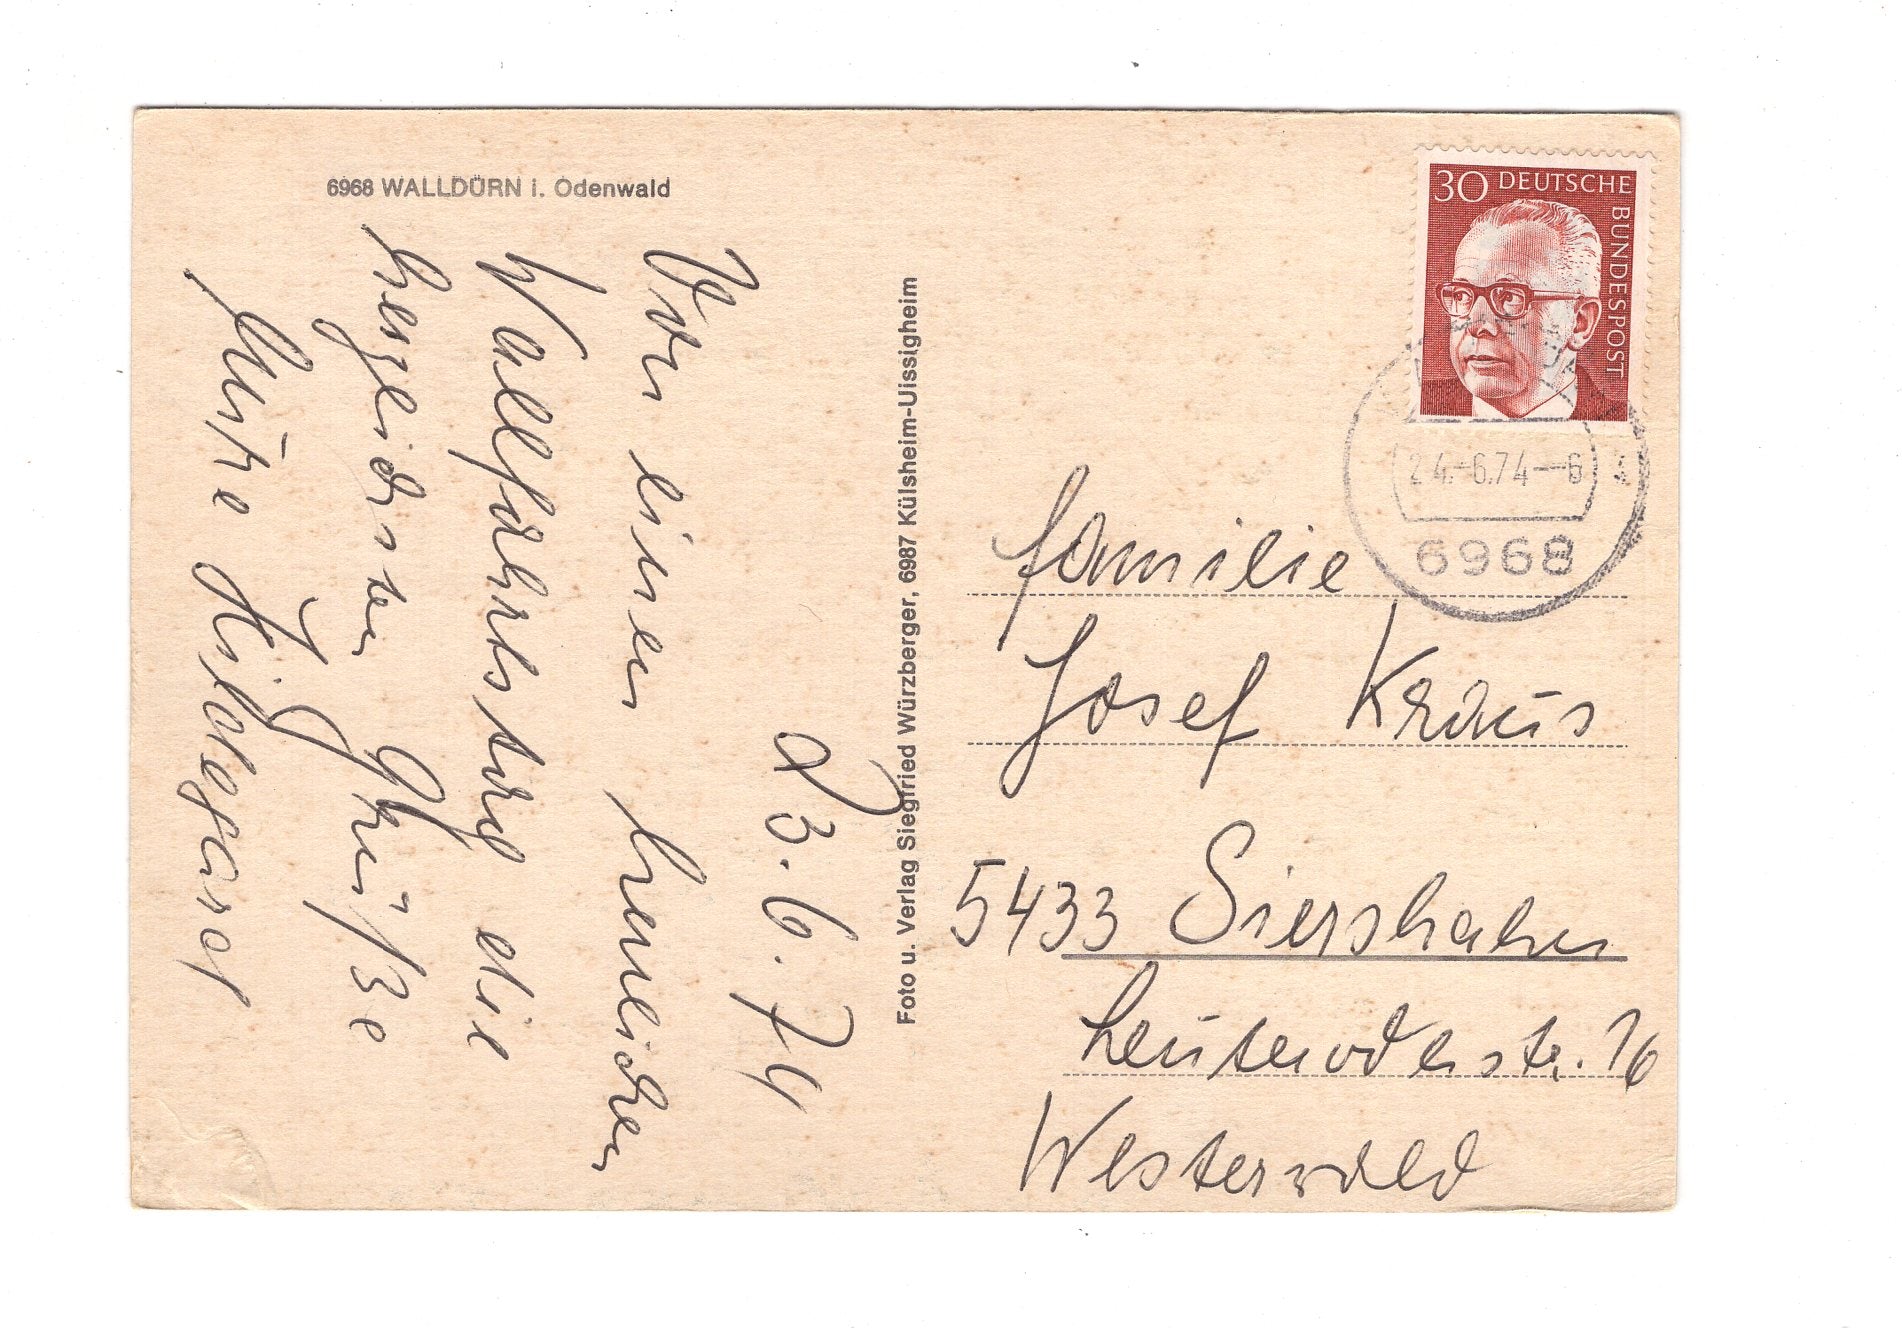 6968 WALLDÜRN i. Odenwald
23.6.74
Von einer
Wallfahrtstag die
herzlichsten Grüße
Hildegard
Foto u. Verlag Siegfried Würzberger, 6987 Külsheim-Uissigheim
30 DEUTSCHE
BUNDESPOST
24.-6.74--6
6968
Familie
Josef Kraus
5433 Siershahn
Leuteroderstr. 16
Westerwald